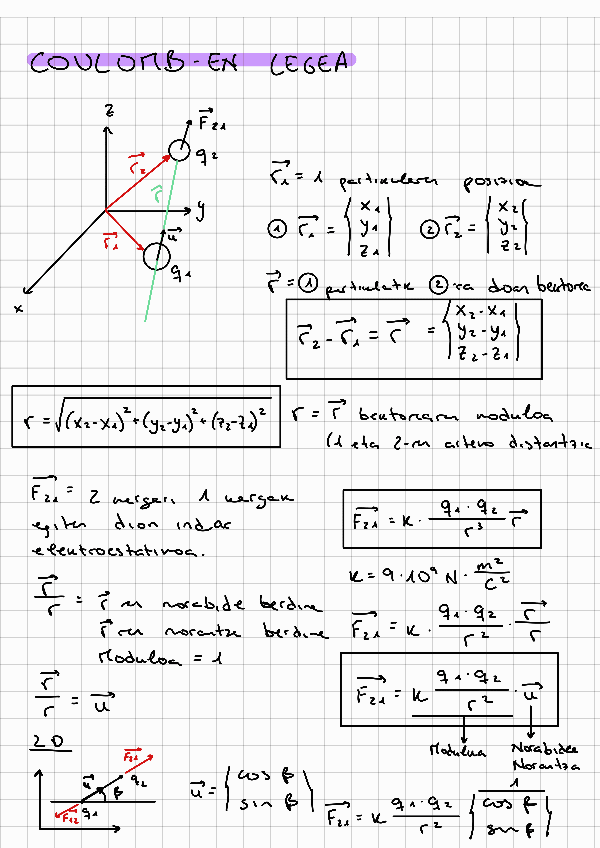 COULOMB-EN LEGEA
z
y
x
F⃗21
q2
r⃗2
r⃗
r⃗1
u⃗
q1
r⃗1 = 1 partikularen posizioa
① r⃗1 = { x1 y1 z1 |  ② r⃗2 = { x2 y2 z2 |
r⃗ = ① partikulatik ② ra doan bektorea
r⃗2 - r⃗1 = r⃗ = { x2-x1 y2-y1 z2-z1 |
r = √((x2-x1)² + (y2-y1)² + (z2-z1)²)
r = r⃗ bektorearen moduloa
(1 eta 2-ren arteko distantzia
F⃗21 = 2 kargari 1 kargak
egiten dion indar
elektroestatikoa.
F⃗21 = K · q1·q2 / r³ r⃗
K = 9·10⁹ N · m²/C²
r⃗/r = r⃗ en norabide berdina
r⃗ ren norantza berdina
Moduloa = 1
F⃗21 = K · q1·q2 / r² · r⃗/r
r⃗/r = u⃗
F⃗21 = K q1·q2 / r² · u⃗
Modulua
Norabidea
Norantza
1
2D
F⃗21
u⃗
q2
β
q1
F⃗12
u⃗ = { cos β sin β |
F⃗21 = K q1·q2 / r² { cos β sin β |